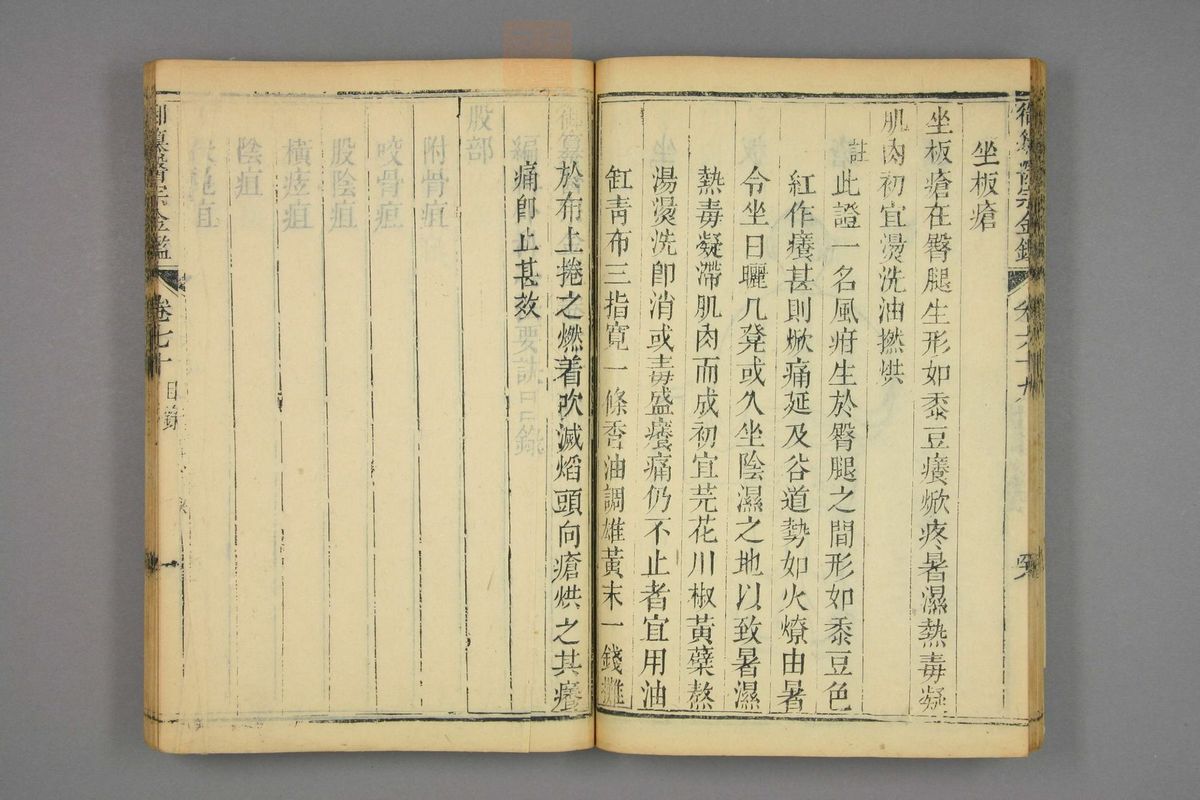 坐板瘡
坐板瘡在臀腿生形如黍豆癢焮疼暑濕熱毒凝
肌肉初宜燙洗油撚烘
註此證一名風疳生於臀腿之間形如黍豆色
紅作癢甚則焮痛延及谷道勢如火燎由暑
令坐日曬几凳或久坐陰濕之地以致暑濕
熱毒凝滯肌肉而成初宜芫花川椒黃蘗熬
湯燙洗卽消或毒盛癢痛仍不止者宜用油
缸靑布三指寬一條香油調雄黃末一錢攤
於布上捲之燃着吹滅熖頭向瘡烘之其癢
痛卽止甚效
股部
附骨疽
咬骨疽
股陰疽
橫痃疽
陰疽
御纂醫宗金鑑
卷七十
目錄
一